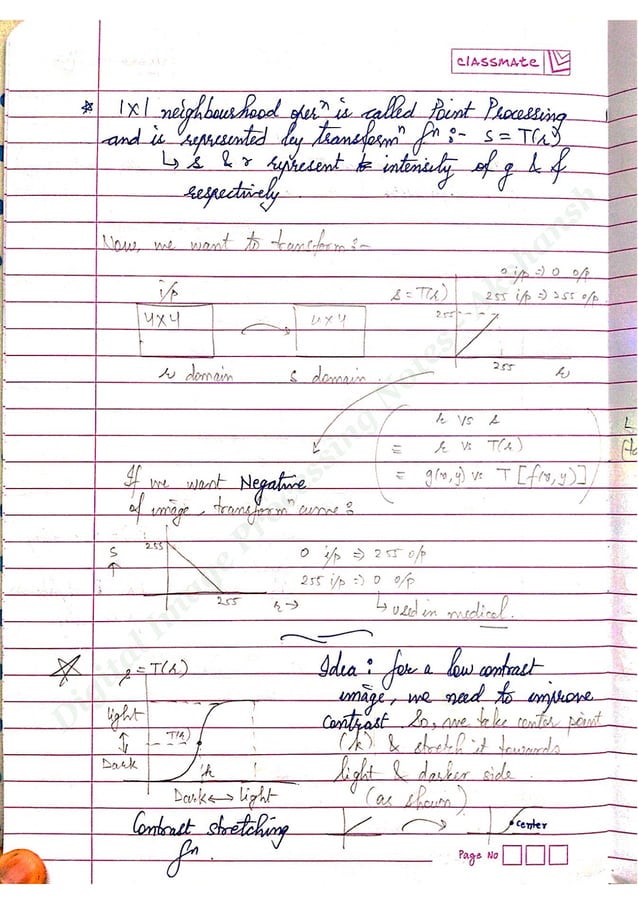 classmate
* 1x1 neighbourhood operⁿ is called Point Processing
and is represented by transformⁿ fⁿ :- s = T(r)
↳ s & r represent intensity of g & f
respectively
Now, we want to transform :-
0 i/p => 0 o/p
i/p
s = T(r)
255 i/p => 255 o/p
4x4
4x4
255
255
r
r domain
s domain
r vs s
= r vs T(r)
= g(x,y) vs T[f(x,y)]
If we want Negative
of image, transformⁿ curve :
s
255
255
r →
0 i/p => 255 o/p
255 i/p => 0 o/p
↳ used in medical.
s = T(r)
Light
T(r)
Dark
k
Dark ↔ Light
Contrast stretching
fⁿ
Idea : for a low contrast
image, we need to improve
contrast. So, we take center point
(k) & stretch it towards
light & darker side
(as shown)
center
Page No
Digital Image Processing Notes: Akshansh